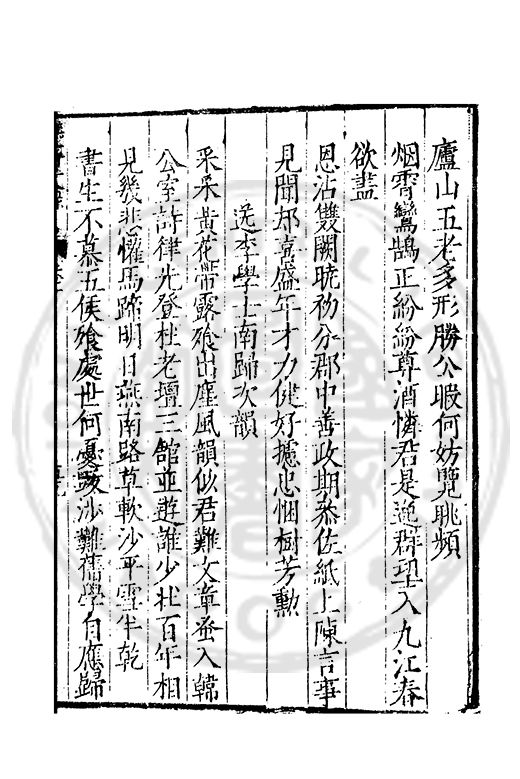 廬山五老多形勝公暇何妨覽眺頻
烟霄鸞鵠正紛紛尊酒憐君是逸群望入九江春
欲盡
恩沾雙闕曉初分郡中善政期恭佐紙上陳言事
見聞却喜盛年才力健好攄忠悃樹芳勲
送李學士南歸次韻
采采黄花帶露飱出塵風韻似君難文章蚤入韓
公室詩律先登杜老壇三館並遊誰少壯百年相
見幾悲懽馬蹄明日燕南路草軟沙平雪半乾
書生不慕五侯飱處世何憂蹊涉難舊學自應歸